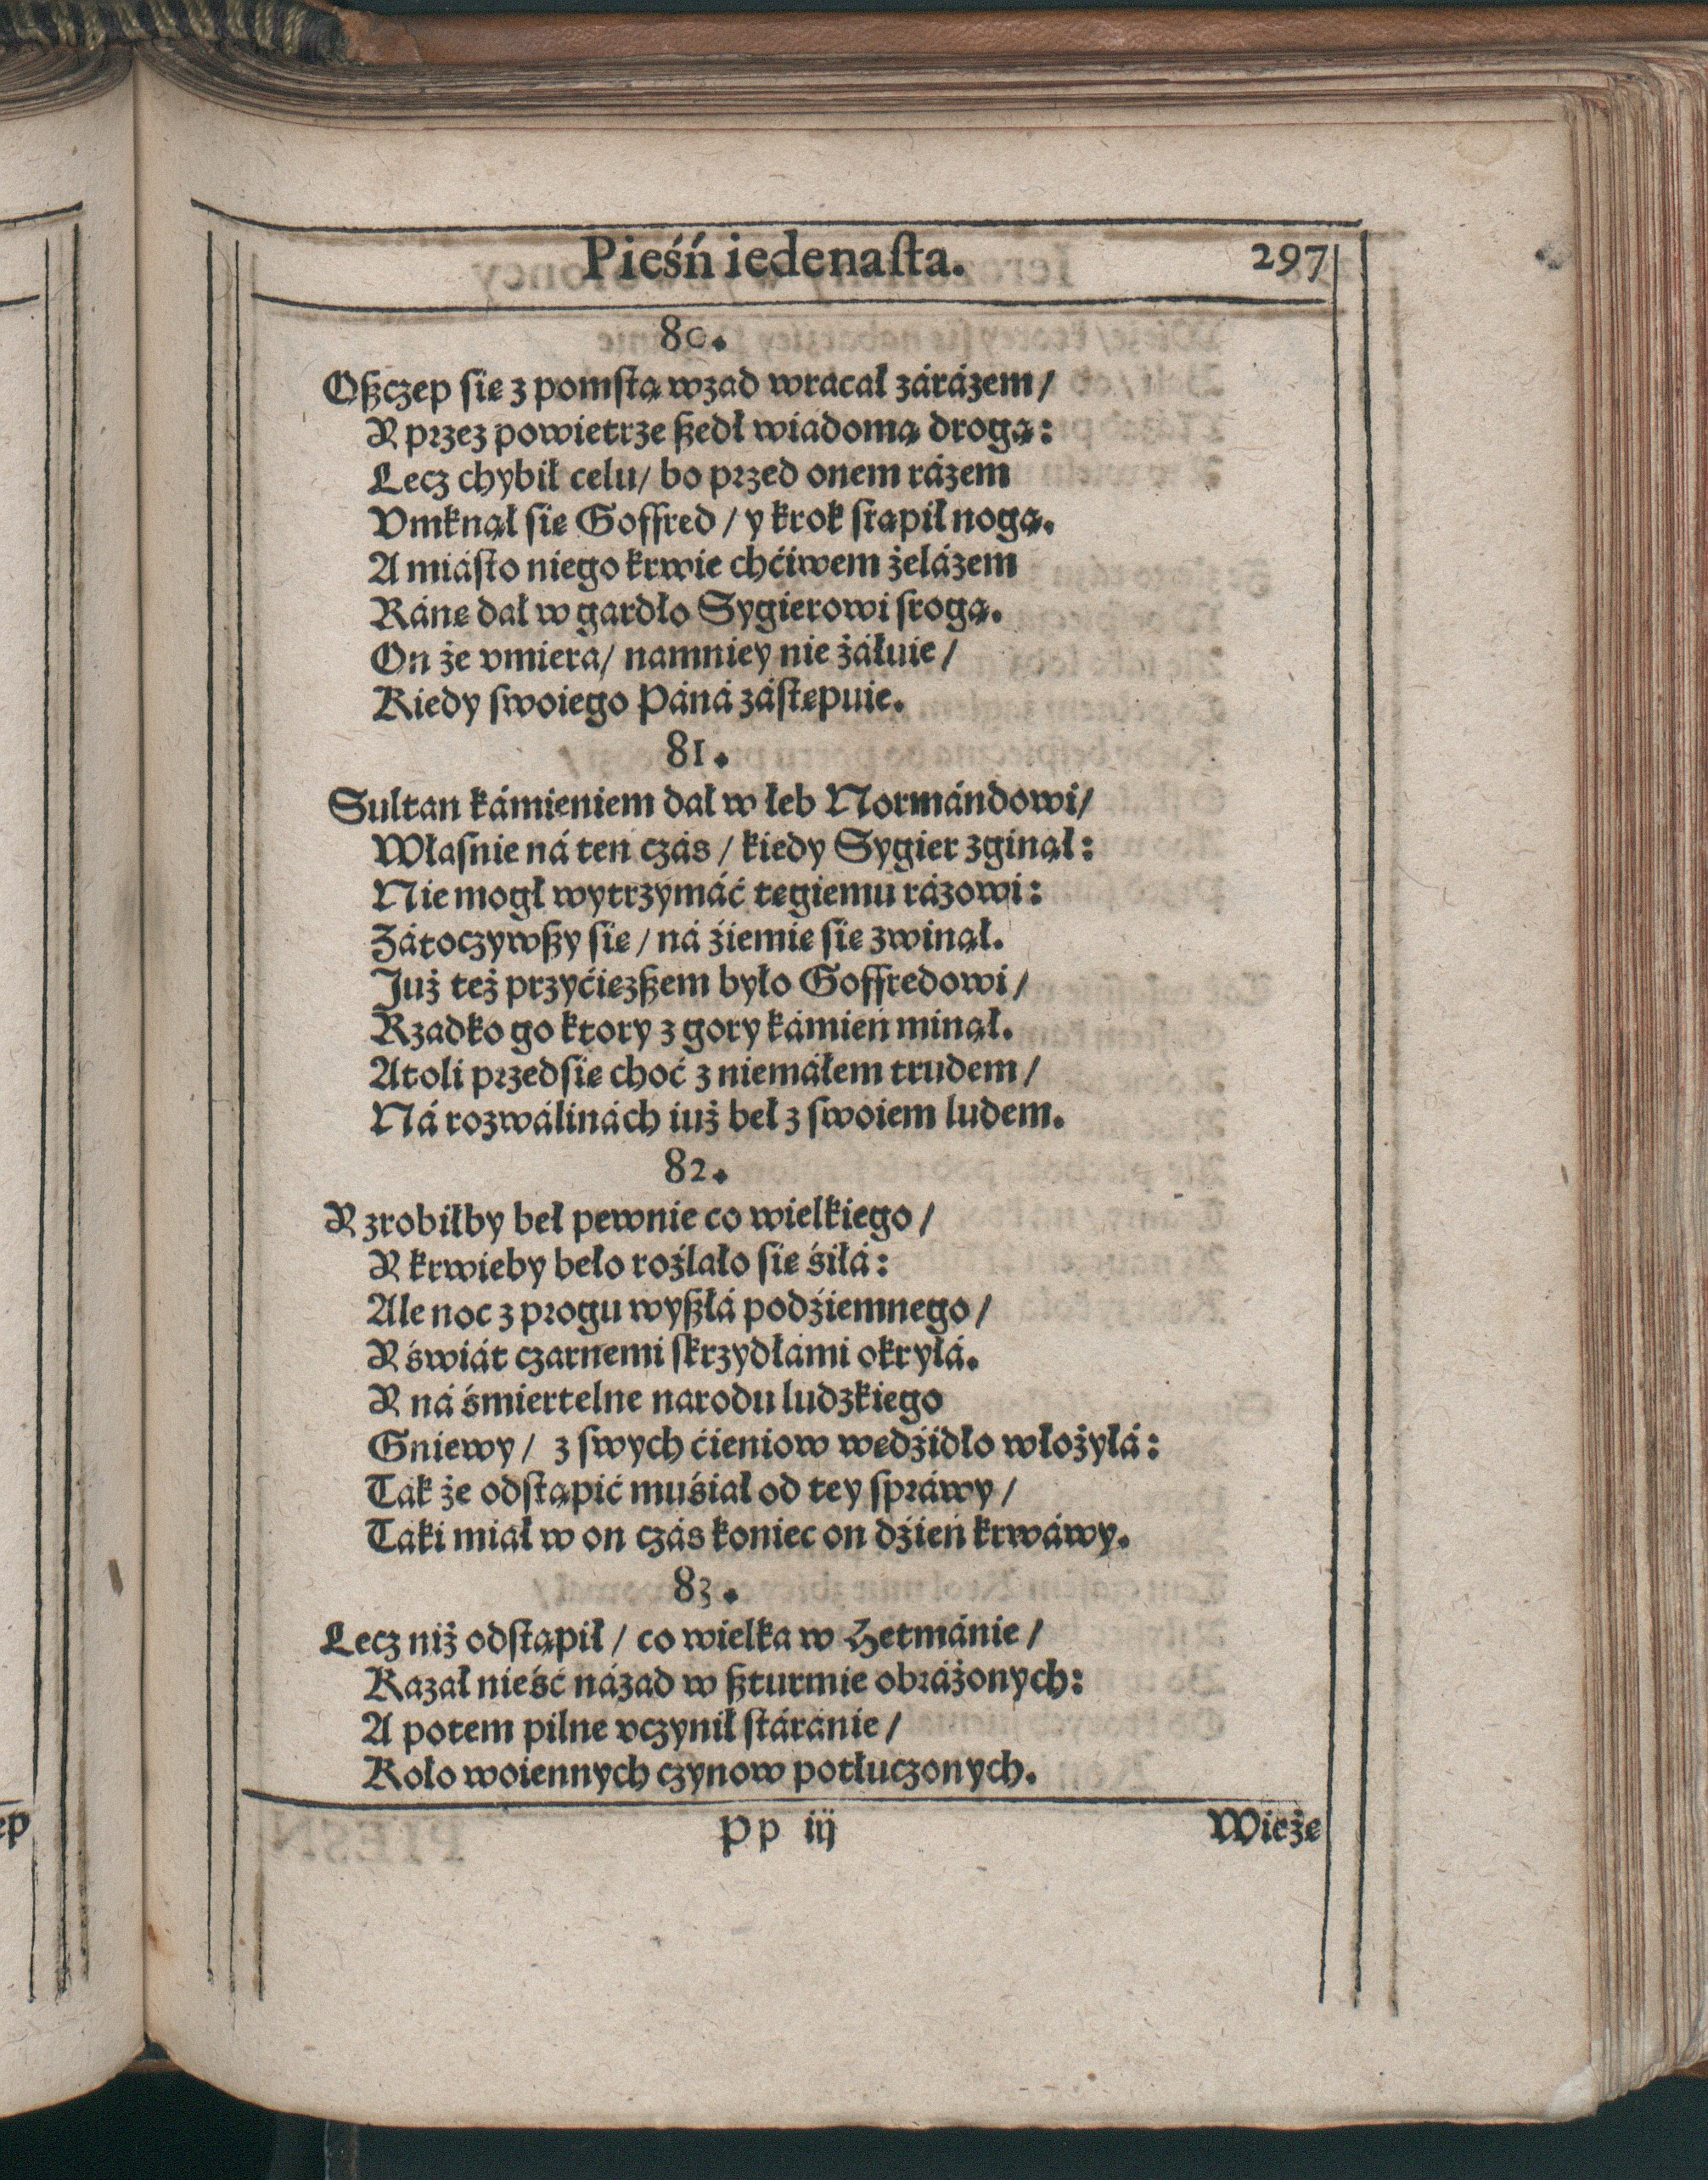 Pieśń iedenaſta. 297
80.
Oßczep ſię z pomſtą wzad wracał zárázem/
Y przez powietrze ßedł wiadomą drogą:
Lecz chybił celu/ bo przed onem rázem
Vmknął ſię Goffred/ y krok ſtąpił nogą.
A miáſto niego krwie chćiwem żelázem
Ránę dał w gardło Sygierowi ſrogą.
On że vmiera/ namniey nie żáłuie/
Kiedy ſwoiego Páná záſtępuie.
81.
Sultan kámieniem dał w łeb Normándowi/
Właſnie ná ten czás/ kiedy Sygier zginął:
Nie mogł wytrzymáć tęgiemu rázowi:
Zátoczywßy ſię/ ná źiemię ſię zwinął.
Już też przyćięzßem było Goffredowi/
Rzadko go ktory z gory kámień minął.
Atoli przedſię choć z niemáłem trudem/
Ná rozwálinách iuż beł z ſwoiem ludem.
82.
Y zrobiłby beł pewnie co wielkiego/
Y krwieby beło roźlało ſię śiłá:
Ale noc z progu wyßłá podźiemnego/
Y świát czarnemi ſkrzydłámi okryłá.
Y ná śmiertelne narodu ludzkiego
Gniewy/ z ſwych ćieniow wędźidło włożyłá:
Tak że odſtąpić muśiał od tey ſpráwy/
Taki miał w on czás koniec on dźień krwáwy.
83.
Lecz niż odſtąpił/ co wielka w Hetmánie/
Kazał nieść názad w ßturmie obráżonych:
A potem pilne vczynił ſtáránie/
Koło woiennych czynow potłuczonych.
Pp iij Wieże
ep